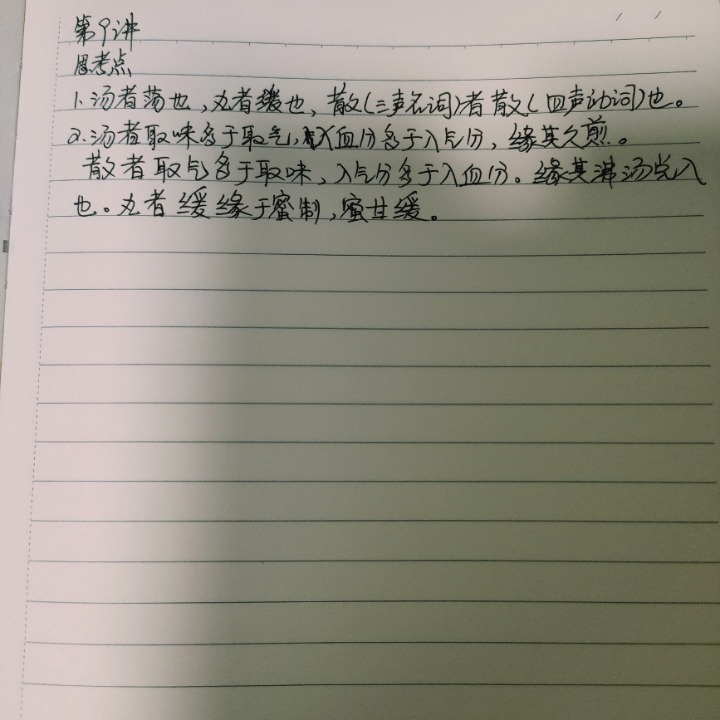 第9讲
思考点
1.汤者荡也,丸者缓也,散(三声名词)者散(四声动词)也。
2.汤者取味多于取气,入血分多于入气分,缘其久煎。
散者取气多于取味,入气分多于入血分。缘其沸汤
也。丸者缓缘于蜜制,蜜甘缓。